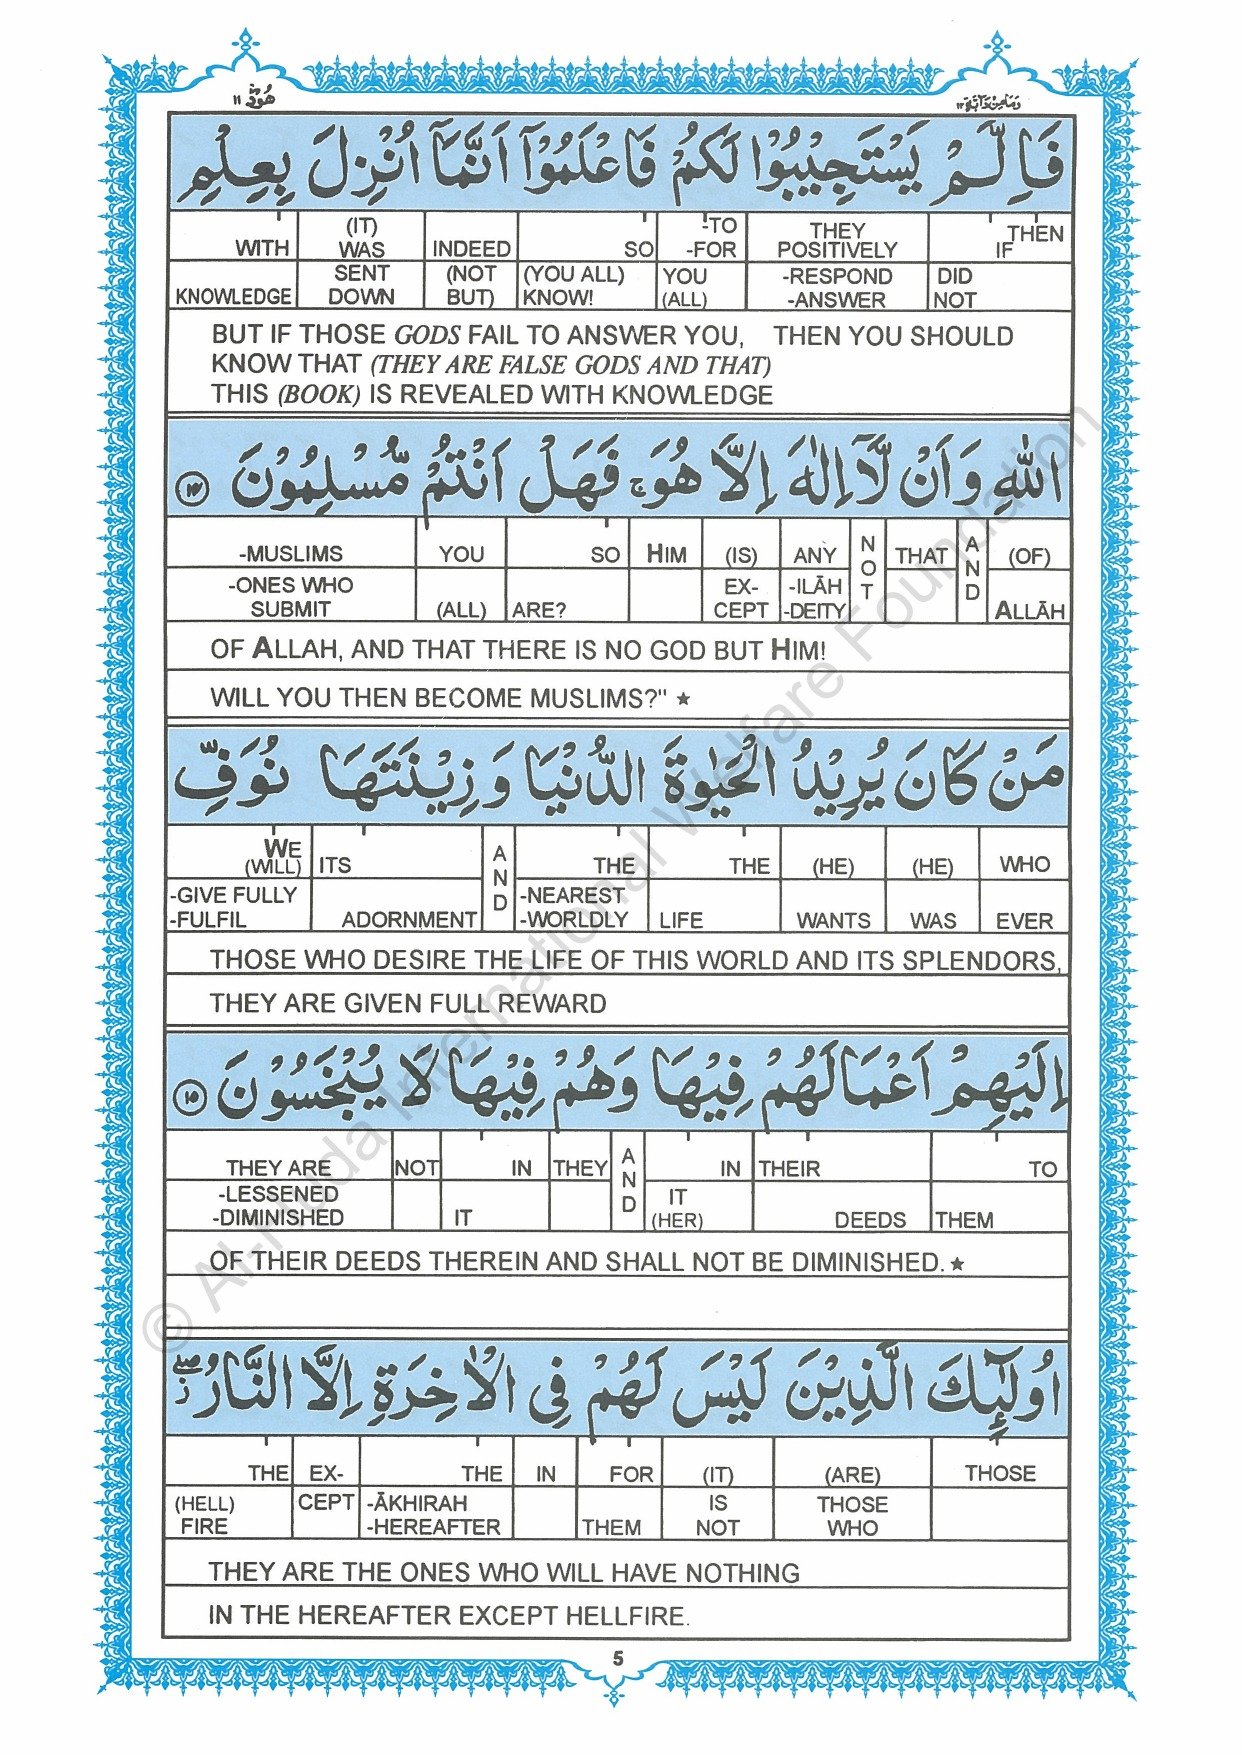 هُوْد ۱۱ وَمَا مِنْ دَآبَّةٍ ۱۲
فَاِلَّمْ يَسْتَجِيْبُوْا لَكُمْ فَاعْلَمُوْٓا اَنَّمَآ اُنْزِلَ بِعِلْمِ
WITH (IT) WAS INDEED SO -TO -FOR THEY POSITIVELY THEN IF
KNOWLEDGE SENT DOWN (NOT BUT) (YOU ALL) KNOW! YOU (ALL) -RESPOND -ANSWER DID NOT
BUT IF THOSE GODS FAIL TO ANSWER YOU, THEN YOU SHOULD
KNOW THAT (THEY ARE FALSE GODS AND THAT)
THIS (BOOK) IS REVEALED WITH KNOWLEDGE
اللّٰهِ وَاَنْ لَّآ اِلٰهَ اِلَّا هُوَ ۚ فَهَلْ اَنْتُمْ مُّسْلِمُوْنَ ۱۴
-MUSLIMS YOU SO HIM (IS) ANY NOT THAT AND (OF)
-ONES WHO SUBMIT (ALL) ARE? EX-CEPT -ILĀH -DEITY ALLĀH
OF ALLAH, AND THAT THERE IS NO GOD BUT HIM!
WILL YOU THEN BECOME MUSLIMS?" ★
مَنْ كَانَ يُرِيْدُ الْحَيٰوةَ الدُّنْيَا وَ زِيْنَتَهَا نُوَفِّ
WE (WILL) ITS AND THE THE (HE) (HE) WHO
-GIVE FULLY -FULFIL ADORNMENT -NEAREST -WORLDLY LIFE WANTS WAS EVER
THOSE WHO DESIRE THE LIFE OF THIS WORLD AND ITS SPLENDORS,
THEY ARE GIVEN FULL REWARD
اِلَيْهِمْ اَعْمَالَهُمْ فِيْهَا وَهُمْ فِيْهَا لَا يُبْخَسُوْنَ ۱۵
THEY ARE NOT IN THEY AND IN THEIR TO
-LESSENED -DIMINISHED IT IT (HER) DEEDS THEM
OF THEIR DEEDS THEREIN AND SHALL NOT BE DIMINISHED. ★
اُولٰٓئِكَ الَّذِيْنَ لَيْسَ لَهُمْ فِى الْاٰخِرَةِ اِلَّا النَّارُ ۖ
THE EX- THE IN FOR (IT) (ARE) THOSE
(HELL) FIRE CEPT -ĀKHIRAH -HEREAFTER THEM IS NOT THOSE WHO
THEY ARE THE ONES WHO WILL HAVE NOTHING
IN THE HEREAFTER EXCEPT HELLFIRE.
5
© Al-Huda International Welfare Foundation